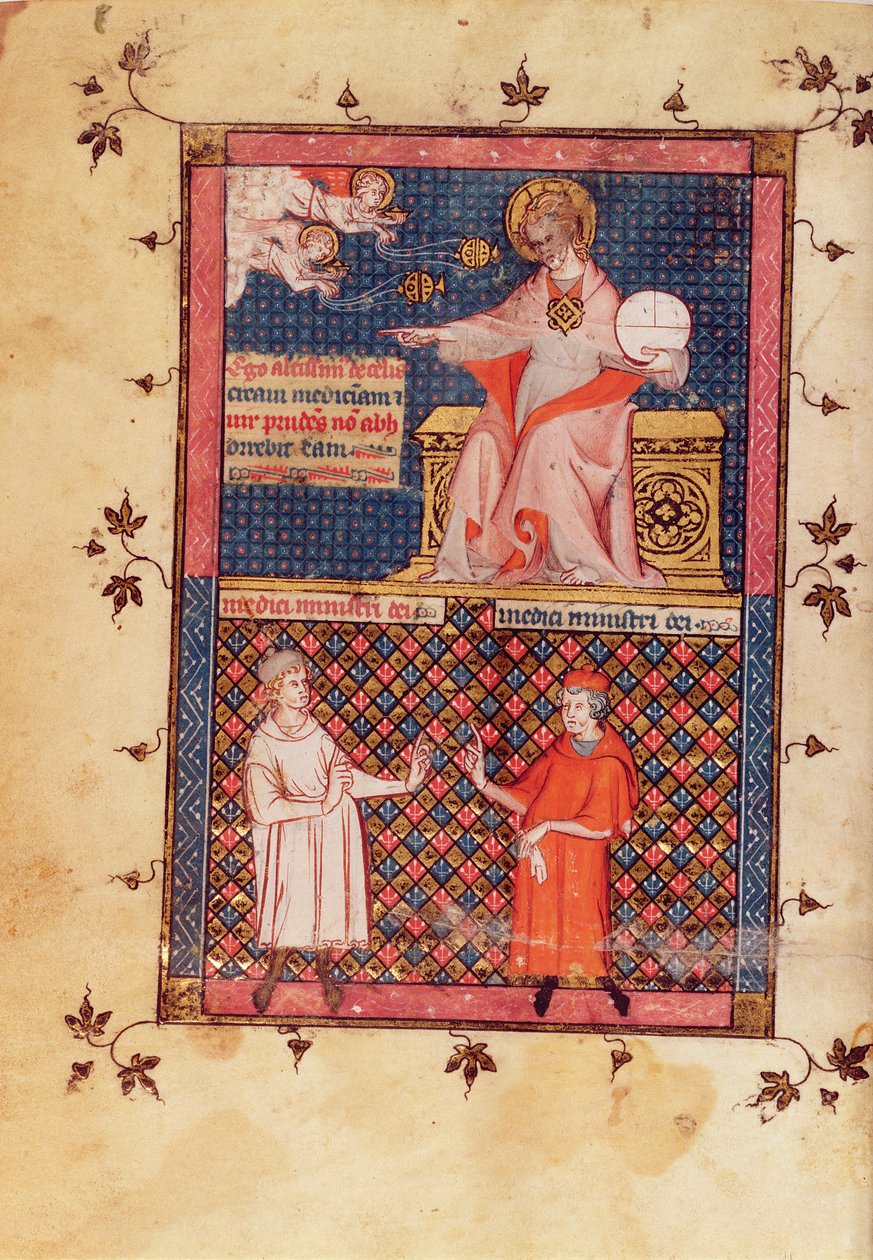 Ego altissim' de celis
creavi medicinam ⁊
vir prudēs nō abh
orrebit eam
medici ministri dei
medici ministri dei